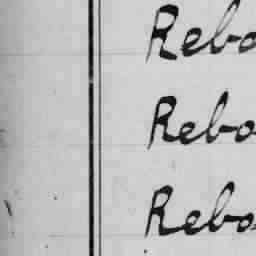 Rebo
Rebo
Rebo